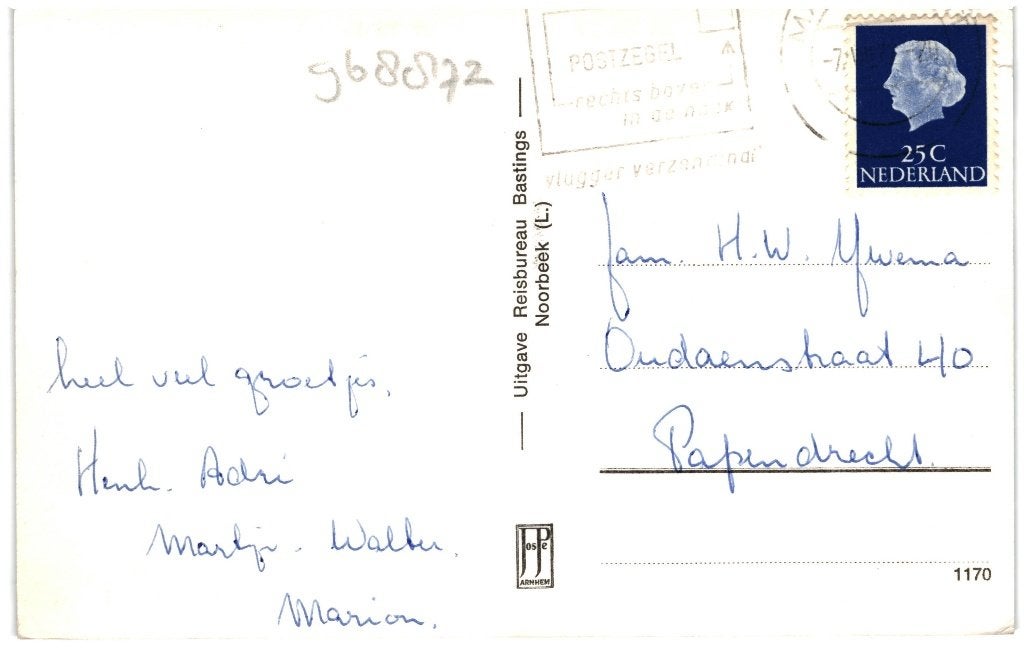 968872
POSTZEGEL
rechts boven
in de hoek
vlugger verzending
25 C
NEDERLAND
Uitgave Reisbureau Bastings
Noorbeek (L.)
Fam. H.W. Ywema
Oudaenstraat 40
Papendrecht.
heel veel groetjes.
Henk. Adri
Martje. Walter.
Marion.
JosPé
ARNHEM
1170